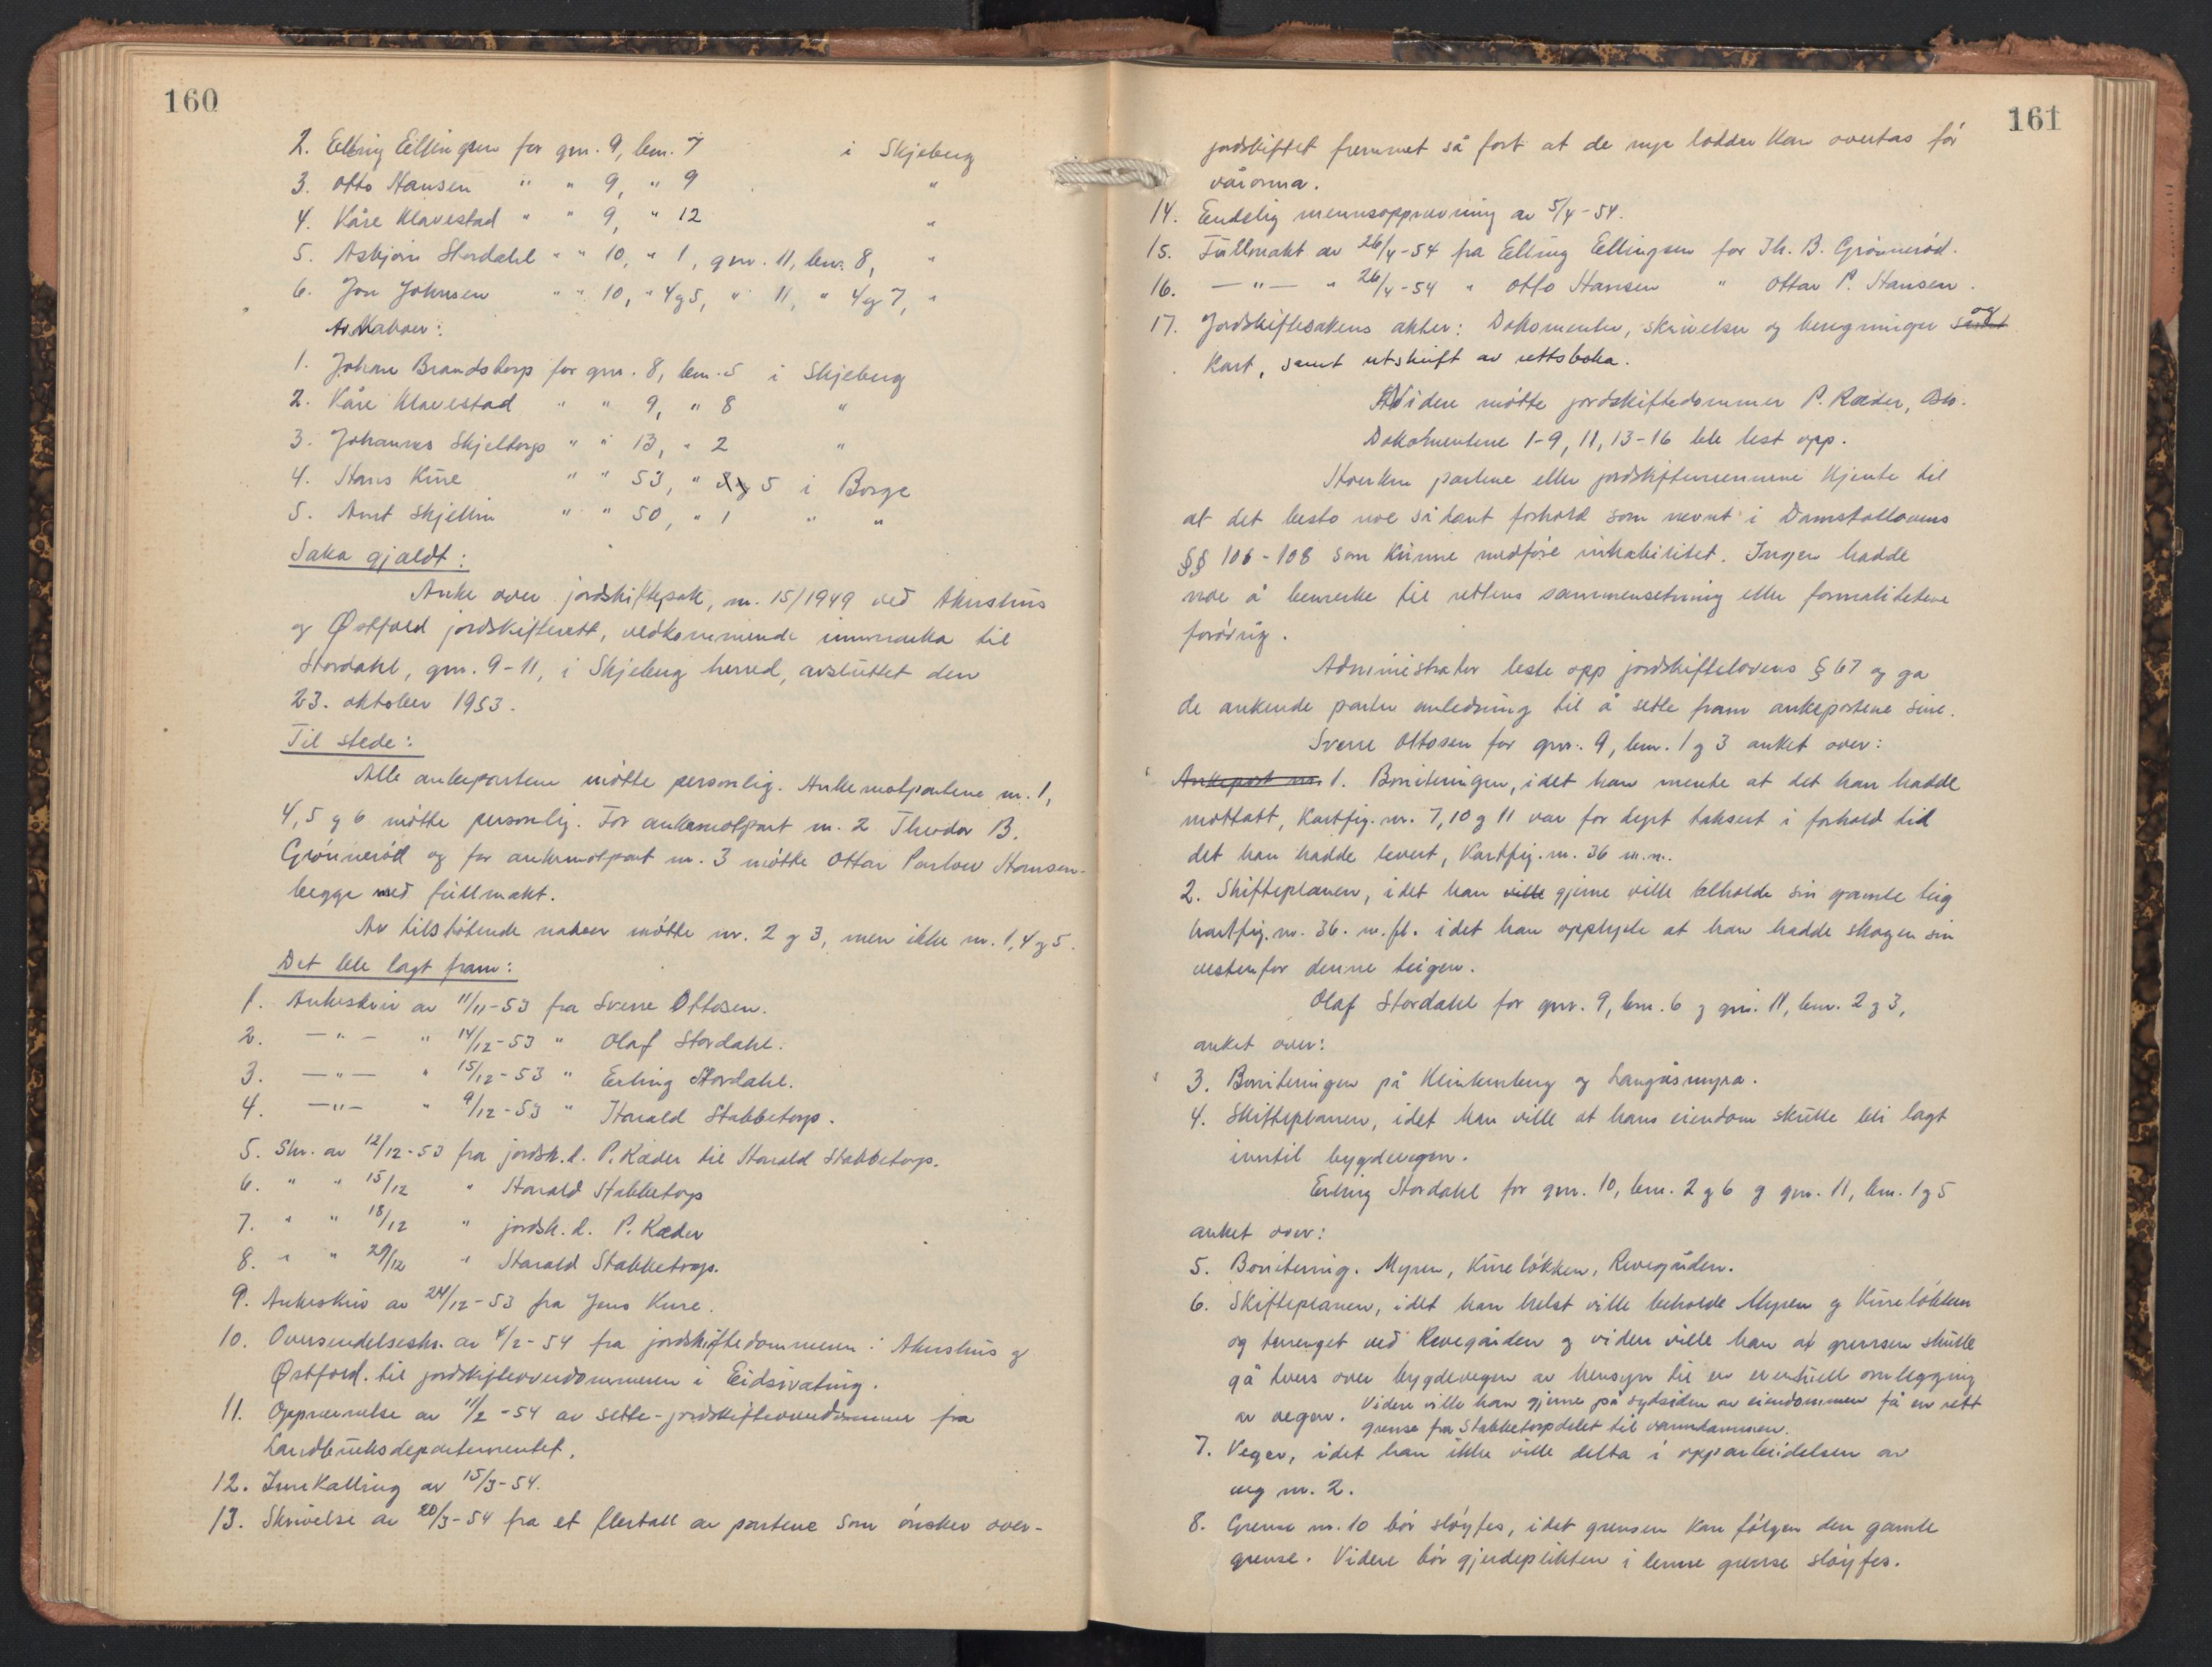 160
2. Elling Ellingsen for gnr. 9, bnr. 7 i Skjeberg
3. Otto Hansen " " 9, " 9 "
4. Kåre Klavestad " " 9, " 12 "
5. Asbjørn Stordahl " " 10, " 1, gnr. 11, bnr. 8, "
6. Jon Johnsen " " 10, " 4 og 5, " 11, " 4 og 7, "
Av Naboer:
1. Johan Brandstorp for gnr. 8, bnr. 5 i Skjeberg
2. Kåre Klavestad " " 9, " 8 "
3. Johannes Skjeltorp " " 13, " 2 "
4. Hans Kure " " 53, " 5 i Borge
5. Arnt Skjellin " " 50, " 1 " "
Saka gjaldt:
Anke over jordskiftesak, nr. 15/1949 ved Akershus
og Østfold jordskifterett, vedkommende innmarka til
Stordahl, gnr. 9-11, i Skjeberg herred, avsluttet den
23. oktober 1953.
Til stede:
Alle ankepartene møtte personlig. Ankemotpartene nr. 1,
4, 5 og 6 møtte personlig. For ankemotpart nr. 2 Theodor B.
Grønnerød og for ankemotpart nr. 3 møtte Ottar Parlow Hansen-
begge med fullmakt.
Av tilstøtende naboer møtte nr. 2 og 3, men ikke nr. 1, 4 og 5.
Det ble lagt fram:
1. Ankeskriv av 11/11-53 fra Sverre Ottosen.
2. — " — " 14/12-53 " Olaf Stordahl.
3. — " — " 15/12-53 " Erling Stordahl.
4. — " — " 9/12-53 " Harald Stabbetorp.
5. Skr. av 12/12-53 fra jordsk.d. P. Ræder til Harald Stabbetorp.
6. " " 15/12 " Harald Stabbetorp
7. " " 18/12 " jordsk.d. P. Ræder
8. " " 29/12 " Harald Stabbetorp.
9. Ankeskriv av 24/12-53 fra Jens Kure.
10. Oversendelsesskr. av /2-54 fra jordskiftedommeren i Akershus og
Østfold. til jordskifteoverdommeren i Eidsivating.
11. Oppnevnelse av 11/2-54 av sette-jordskifteoverdommer fra
Landbruksdepartementet.
12. Innkalling av 15/3-54.
13. Skrivelse av 20/3-54 fra et flertall av partene som ønsker over-
161
jordskiftet fremmet så fort at de nye lodder kan overtas før
våronna.
14. Endelig mennsoppnevning av 5/4-54.
15. Fullmakt av 26/4-54 fra Elling Ellingsen for Th. B. Grønnerød.
16. — " — " 26/4-54 " Otto Hansen " Ottar P. Hansen.
17. Jordskiftesakens akter: Dokumenter, skrivelser og beregninger samt og
Kart, samt utskrift av rettsboka.
Videre møtte jordskiftedommer P. Ræder, Oslo.
Dokumentene 1-9, 11, 13-16 ble lest opp.
Hverken partene eller jordskiftemennene kjente til
at det besto noe sådant forhold som nevnt i Domstollovens
§§ 106-108 som kunne medføre inhabilitet. Ingen hadde
noe å bemerke til rettens sammensetning eller formalitetene
forøvrig.
Administrator leste opp jordskiftelovens § 67 og ga
de ankende parter anledning til å sette fram ankepostene sine.
Sverre Ottosen for gnr. 9, bnr. 1 og 3 anket over:
Ankepost nr. 1. Boniteringen, idet han mente at det han hadde
mottatt, Kartfig. nr. 7, 10 og 11 var for dyrt taksert i forhold til
det han hadde levert, Kartfig. nr. 36 m.m.
2. Skifteplanen, idet han ville gjerne ville beholde sin gamle teig
kartfig. nr. 36. m.fl. idet han opplyste at han hadde skogen sin
vestenfor denne teigen.
Olaf Stordahl for gnr. 9, bnr. 6 og gnr. 11, bnr. 2 og 3,
anket over:
3. Boniteringen på Klinkenberg og Langåsmyra.
4. Skifteplanen, idet han ville at hans eiendom skulle bli lagt
inntil bygdevegen.
Erling Stordahl for gnr. 10, bnr. 2 og 6 og gnr. 11, bnr. 1 og 5
anket over:
5. Bonitering. Myren, Kureløkken, Revegården.
6. Skifteplanen, idet han helst ville beholde Myren og Kureløkken
og terrenget ved Revegården og videre ville han at grensen skulle
gå tvers over bygdevegen av hensyn til en eventuell omlegging
av vegen. Videre ville han gjerne på sydsiden av eiendommen få en rett
grense fra Stabbetorpdelet til vanndammen.
7. Veger, idet han ikke ville delta i opparbeidelsen av
veg nr. 2.
8. Grense nr. 10 bør sløyfes, idet grensen kan følgen den gamle
grense. Videre bør gjerdeplikten i denne grense sløyfes.